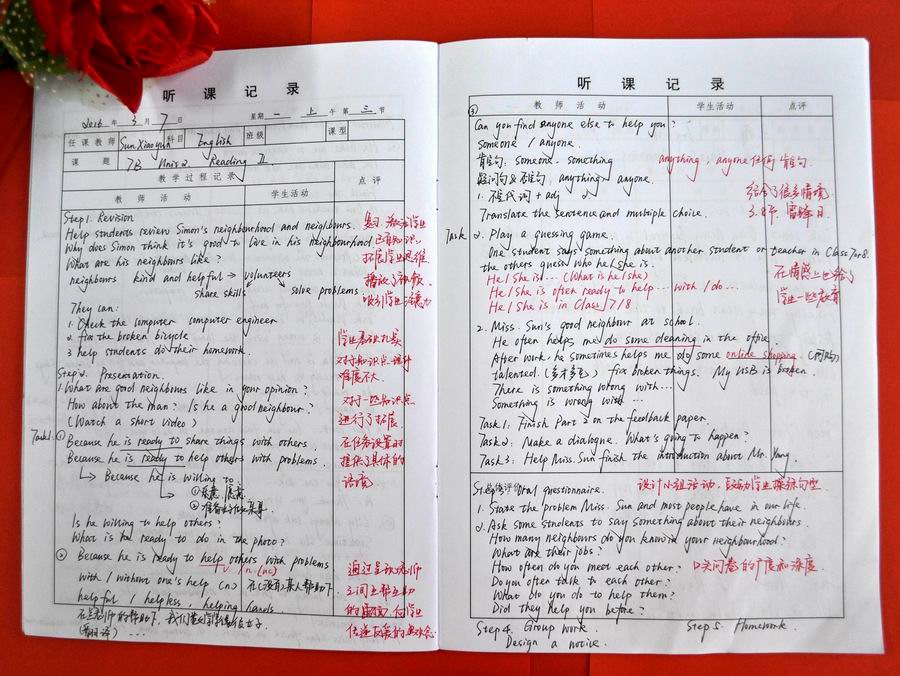 听 课 记 录
2016 年 3 月 7 日 星期 一 上 午 第 三 节
任课教师 Sun Xiaoyun 科目 English 班级 课型
课 题 7B Unit 2 Reading II
教学过程记录
教 师 活 动 学生活动 点 评
Step 1. Revision
Help students review Simon's neighbourhood and neighbours.
Why does Simon think it's good to live in his neighbourhood
What are his neighbours like?
neighbours kind and helpful → volunteers
share skills solve problems
They can:
1 check the computer computer engineer
2 fix the broken bicycle
3 help students do their homework.
Step 2. Presentation.
1. What are good neighbours like in your opinion?
How about the man? Is he a good neighbour?
(Watch a short video)
Task 1: ① Because he is ready to share things with others.
Because he is ready to help others with problems.
Because he is willing to
① 愿意
②
Is he willing to help others?
What is he ready to do in the photo?
② Because he is ready to help others with problems
v n. (uc)
with / without one's help (n) 在(没有)某人帮助下
helpful / helpless, helping hands
复习
已有知识
拓展学生思维
播放了视频
吸引学生注意力
学生基础扎实
对于知识点理解
难度不大.
对于一些知识点
进行了拓展
在任务设置时
提供了具体的
语境
通过呈现老师
之间互帮互助
的画面, 向学生
传递友爱的
听 课 记 录
③ 教 师 活 动 学生活动 点 评
Can you find anyone else to help you?
Someone / anyone.
肯定句: someone, something anything, anyone 任何 肯定句.
疑问句&否定句: anything, anyone
1. 不定代词 + adj
Translate the sentence and multiple choice.
结合了很多情境
3.8节 雷锋日
Task 2. Play a guessing game.
One student says something about another student or teacher in Class 7 or 8.
the others guess who he/she is.
He/She is... (What is he/she)
He/She is often ready to help... with / do...
He/She is in Class 7/8
在情感上也给
学生一些教育
2. Miss. Sun's good neighbour at school.
He often helps me do some cleaning in the office.
After work he sometimes helps me do some online shopping. (网购)
talented. (多才多艺) fix broken things. My USB is broken.
There is something wrong with...
Something is wrong with...
Task 1: Finish Part 2 on the feedback paper.
Task 2: Make a dialogue. What's going to happen?
Task 3: Help Miss. Sun finish the introduction about Mr. Yang.
总体评价
Oral questionnaire. 设计小组活动, 鼓励学生操练句型
1. State the problem Miss. Sun and most people have in our life.
2. Ask some students to say something about their neighbours.
How many neighbours do you know in your neighbourhood?
What are their jobs?
How often do you meet each other? 口头问卷的广度和深度
Do you often talk to each other?
What do you do to help them?
Did they help you before?
Step 4. Group work. Step 5. Homework.
Design a notice.